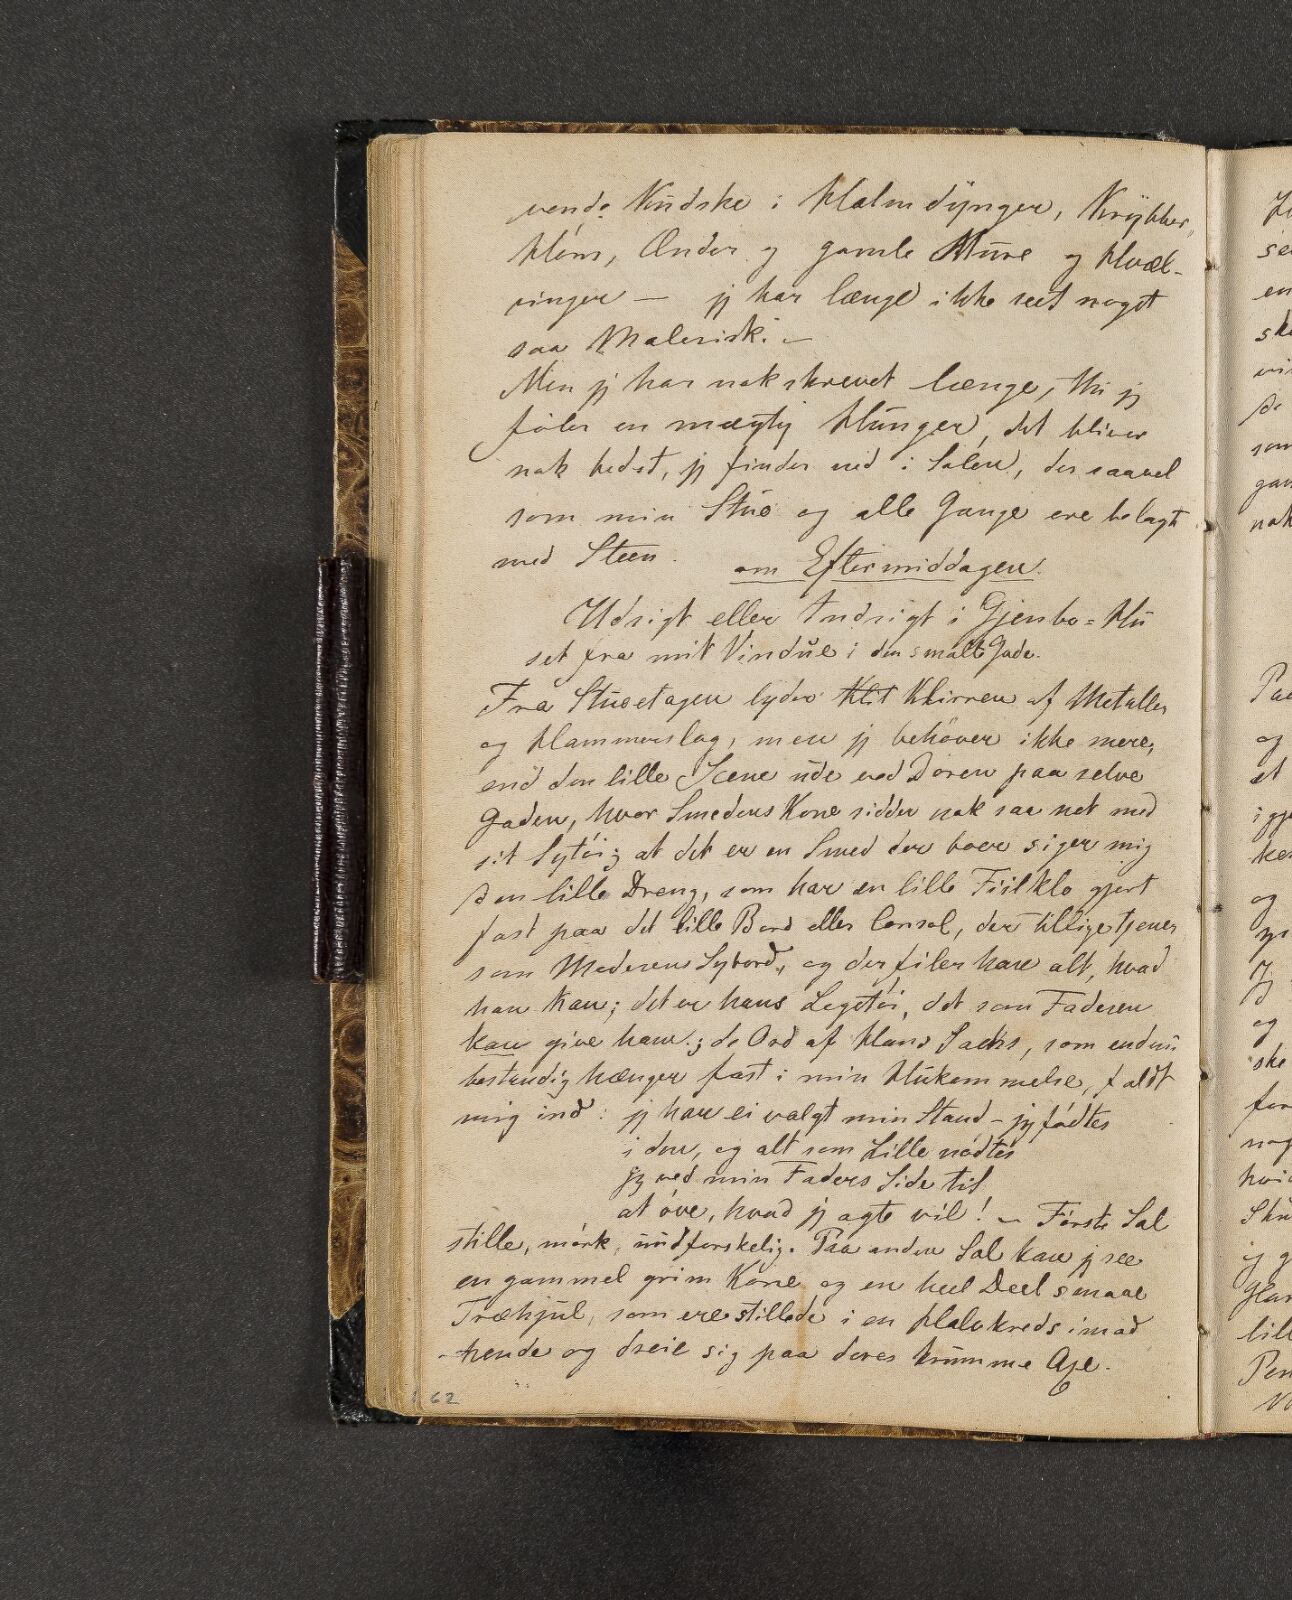 vende Kudske i Halmdynger, Krybber,
Høns, Ænder og gamle Mure og Hvæl-
vinger — jeg har længe ikke seet noget
saa Malerisk. —
Men jeg har nok skrevet længe, thi jeg
føler en mægtig Hunger, det bliver
nok bedst, jeg finder ned i Salen, der saavel
som min Stue og alle Gange ere belagt
med Steen. om Eftermiddagen.
Udsigt eller Indsigt i Gjenbo-Hu
set fra mit Vindue i den smalle Gade.
Fra Stueetagen lyder Klit Klirren af Metaller
og Hammerslag, men jeg behøver ikke mere,
end den lille Scene ude ved Døren paa selve
Gaden, hvor Smedens Kone sidder nok saa net med
sit Sytøi; at det er en Smed der boer siger mig
den lille Dreng, som har en lille Fiilklo gjort
fast paa det lille Bord eller Consol, der tillige tjener
som Moderens Sybord, og der filer han alt, hvad
han kan; det er hans Legetøi, det som Faderen
kan give ham; de Ord af Hans Sachs, som endnu
bestandig hænger fast i min Hukommelse, faldt
mig ind: jeg har ei valgt min Stand – jeg fødtes
i den, og alt som Lille nødtes
jeg ved min Faders Side til
at øve, hvad jeg agte vil! — Første Sal
stille, mørk, uudforskelig. Paa anden Sal kan jeg see
en gammel grim Kone og en heel Deel smaae
Træhjul, som ere stillede i en Halvkreds imod
hende og dreie sig paa deres krumme Axe.
62